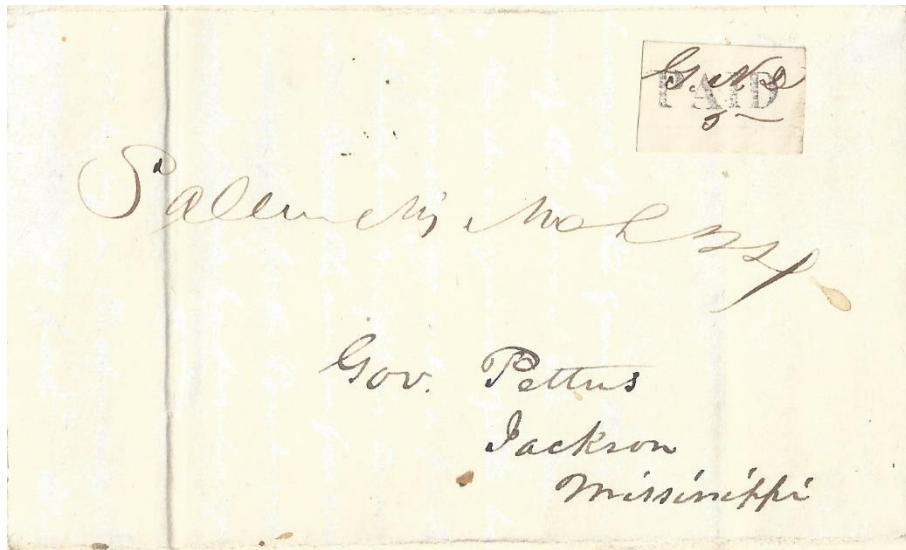 PAID
5
Salem
Gov. Pettus
Jackson
Mississippi